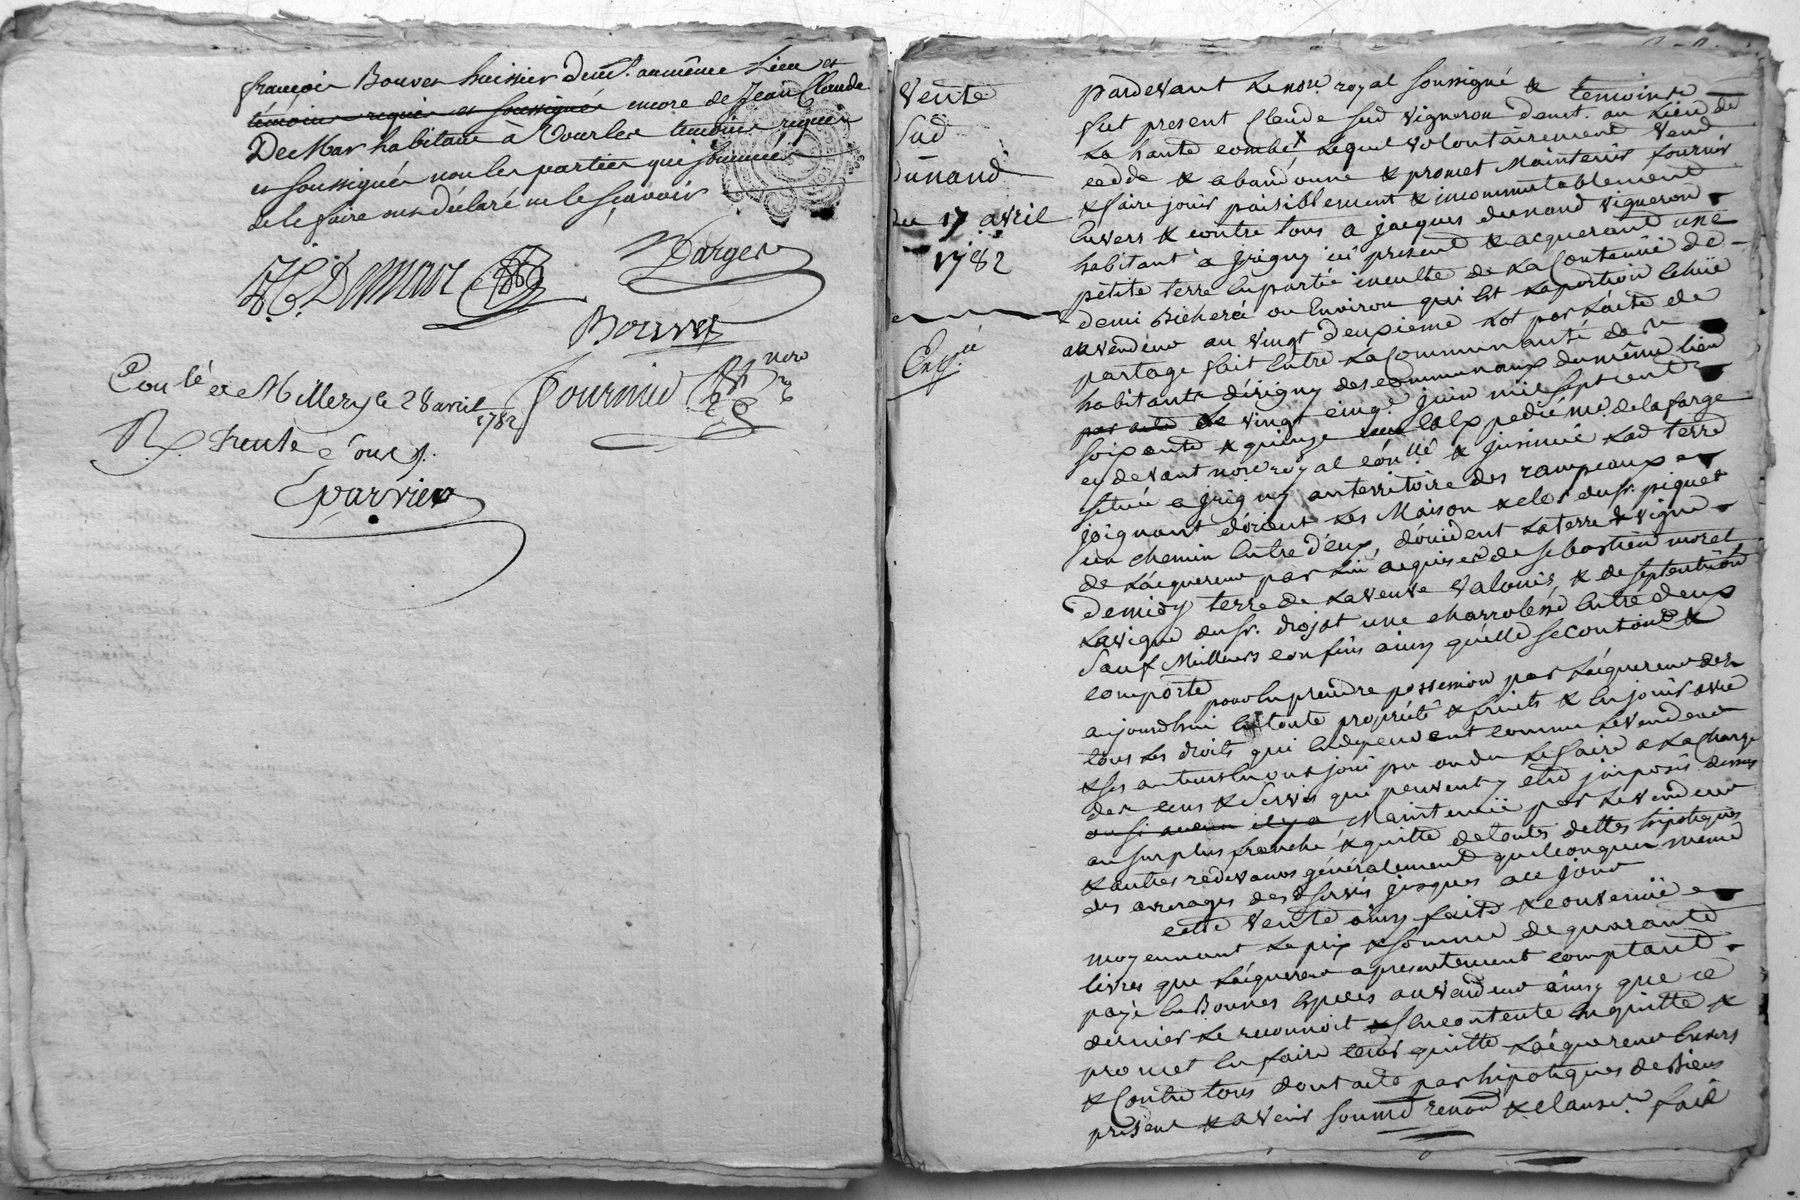 françois Bouver huissier demt. au même Lieu et
témoins requis et soussignés encore de Jean Claude
DeMar habitant a Vourles temoins requis
et soussignés non les parties qui sommées
de le faire ont déclaré ne le sçavoir
J. C. Demar
Dargere
Bouver
Fournier nore
Conlé a Millery le 28 avril
1782
R. trente sous
Evarvier
Vente
Sud
Dunand
Du 17 avril
1782
Exp.ée
pardevant Le nore royal soussigné & temoins
fut present Claude Sud vigneron demt. au Lieu de
La haute combe Lequel volontairement vend
cedde & abandonne & promet Maintenir fournir
& faire jouir paisiblement & incommutablement
Envers & contre tous a jacques dunand vigneron
habitant a grigny ici present & acquerant une
petite terre en partie inculte de La Contenüe de
demi Bicherée ou Environ qui Est La portion Echüe
au vendeur au vingt deuxieme Lot par L'acte de
partage fait Entre La Communauté des
habitants de grigny des communaux du même lieu
par acte de vingt cinq juin mil sept cent
soixante & quinze Expedié me. delafarge
cy devant nore royal & Lad terre
située a grigny au territoire des rampeaux
joignant d'orient Les Maison & clos du sr. piquet
un chemin Entre d'eux, d'occident La terre & vigne
de L'acquereur par Lui acquise de sebastien morel
de midy terre de La veuve Valouis, & de septentrion
La vigne du sr. drojat une charroliere Entre deux
Sauf Meilleurs confins ainsy qu'elle se contient &
comporte pour En prendre possession par L'acquereur des
aujourdhui En toute propriété & fruits & En jouir avec
tous Les droits qui En dependent comme Le vendeur
& ses auteurs En ont joui pu ou du Le faire a La charge
des cens & servis qui peuvent y etre imposés dessus
ou si aucun il y a Maintenüe par Le vendeur
au surplus franche & quitte de toutes dettes hipoteques
& autres redevances généralement quelconques même
des arrerages des servis jusques a ce jour
cette vente ainsy faite & convenüe
moyennant Le prix & somme de quarante
livres que L'acquereur a presentement comptant
payé En Bonnes Especes au vendeur ainsy que ce
dernier Le reconnoit S'en contente En quitte &
promet En faire tenir quitte L'acquereur Envers
& Contre tous dont acte par hipoteques de Biens
present & a venir soumd renond & clauses fait